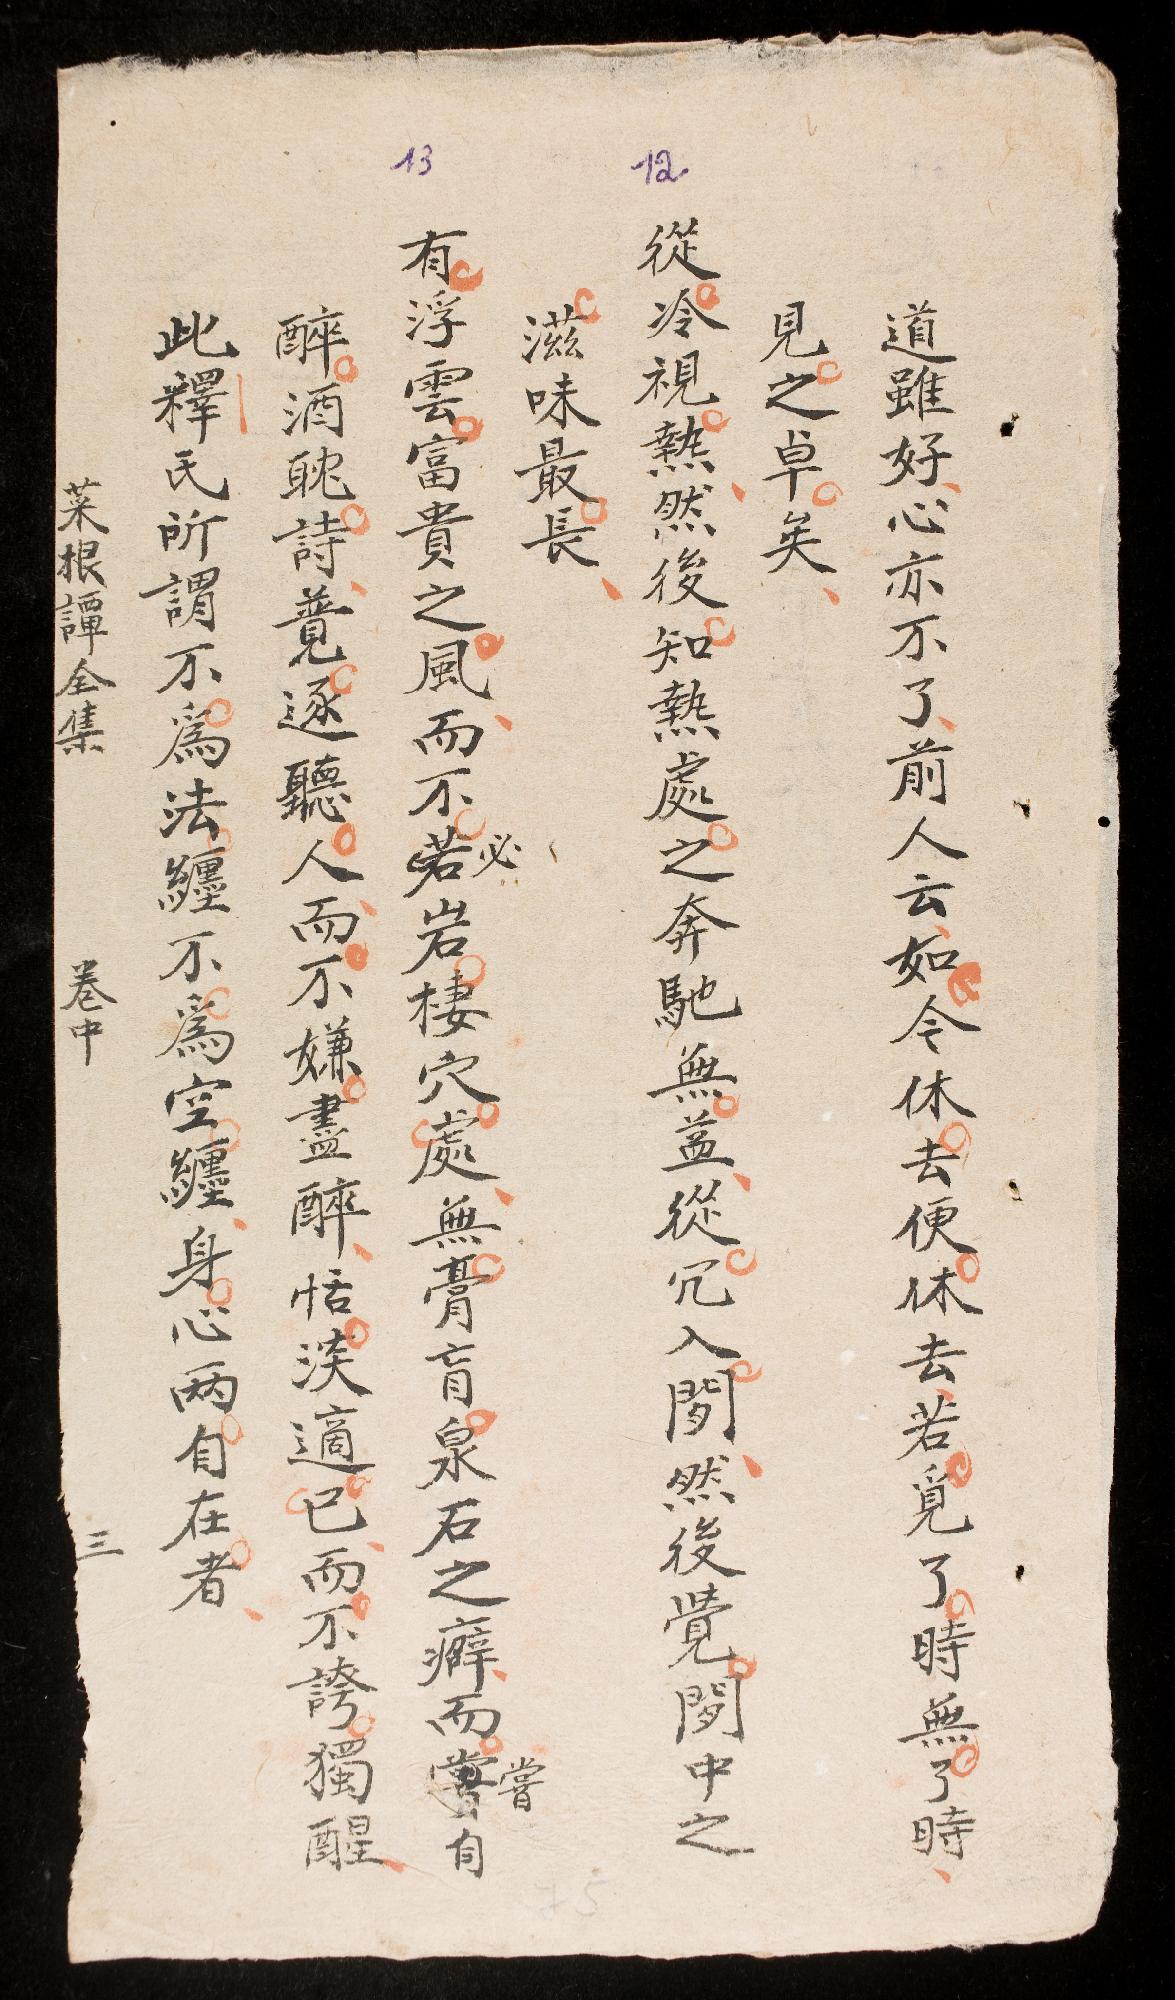 道雖好心亦不了前人云如今休去便休去若覓了時無了時
見之卓矣
12
從冷視熱然後知熱處之奔馳無益從冗入閒然後覺閒中之
滋味最長
13
有浮雲富貴之風而不若岩棲穴處無膏肓泉石之癖而嘗自
必
嘗
醉酒耽詩竟逐聽人而不嫌盡醉恬淡適已而不誇獨醒
此釋氏所謂不為法纏不為空纏身心兩自在者
菜根譚全集 卷中 三